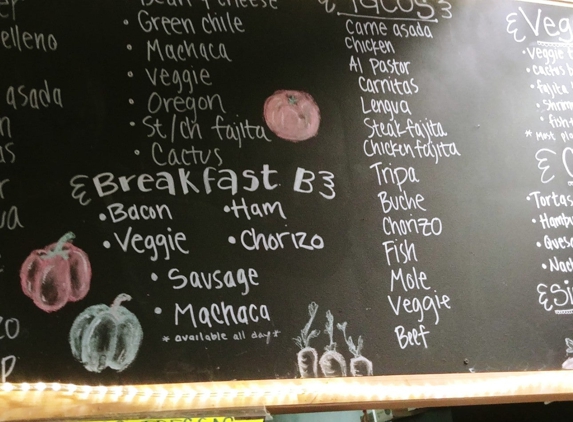 Bean & cheese
• Green chile
• Machaca
• Veggie
• Oregon
• St/ch fajita
• Cactus
Breakfast B
• Bacon • Ham
• Veggie • Chorizo
• Sausage
• Machaca
* available all day *
elleno
asada
Tacos
Carne asada
Chicken
Al Pastor
Carnitas
Lengua
Steak fajita
Chicken fajita
Tripa
Buche
Chorizo
Fish
Mole
Veggie
Beef
Veg
• Veggie
• cactus b
• fajita
• Shrim
• fish
• Tortas
• Hambu
• Ques
• Nach
Si